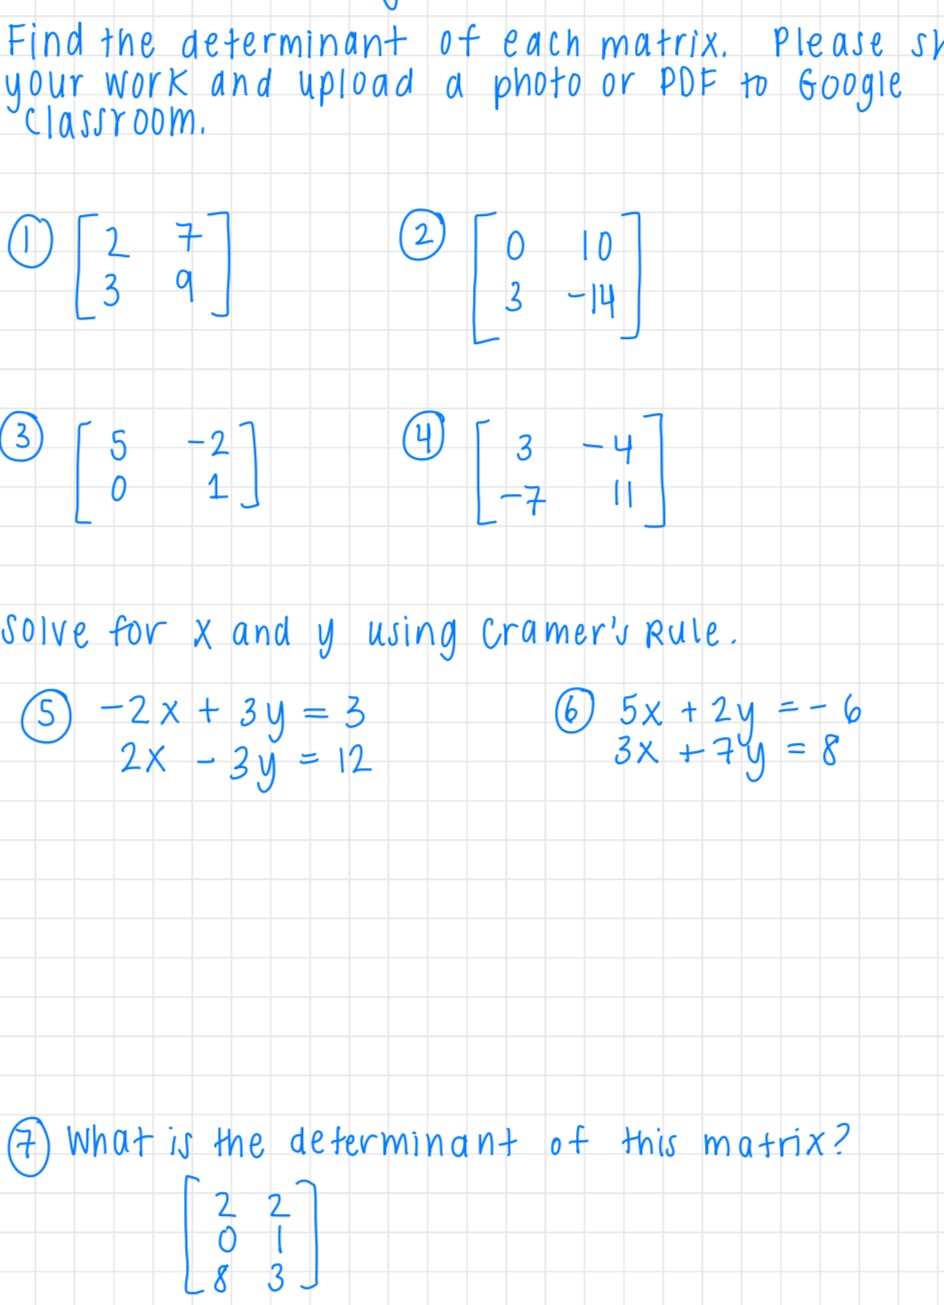 Find the determinant of each matrix. Please
your work and upload a photo or PDF to Google
Classroom.
① [2 7
3 9]
② [0 10
3 -14]
③ [5 -2
0 1]
④ [3 -4
-7 11]
Solve for x and y using Cramer's Rule.
⑤ -2x + 3y = 3
2x - 3y = 12
⑥ 5x + 2y = -6
3x + 7y = 8
⑦ What is the determinant of this matrix?
[2 2
0 1
8 3]